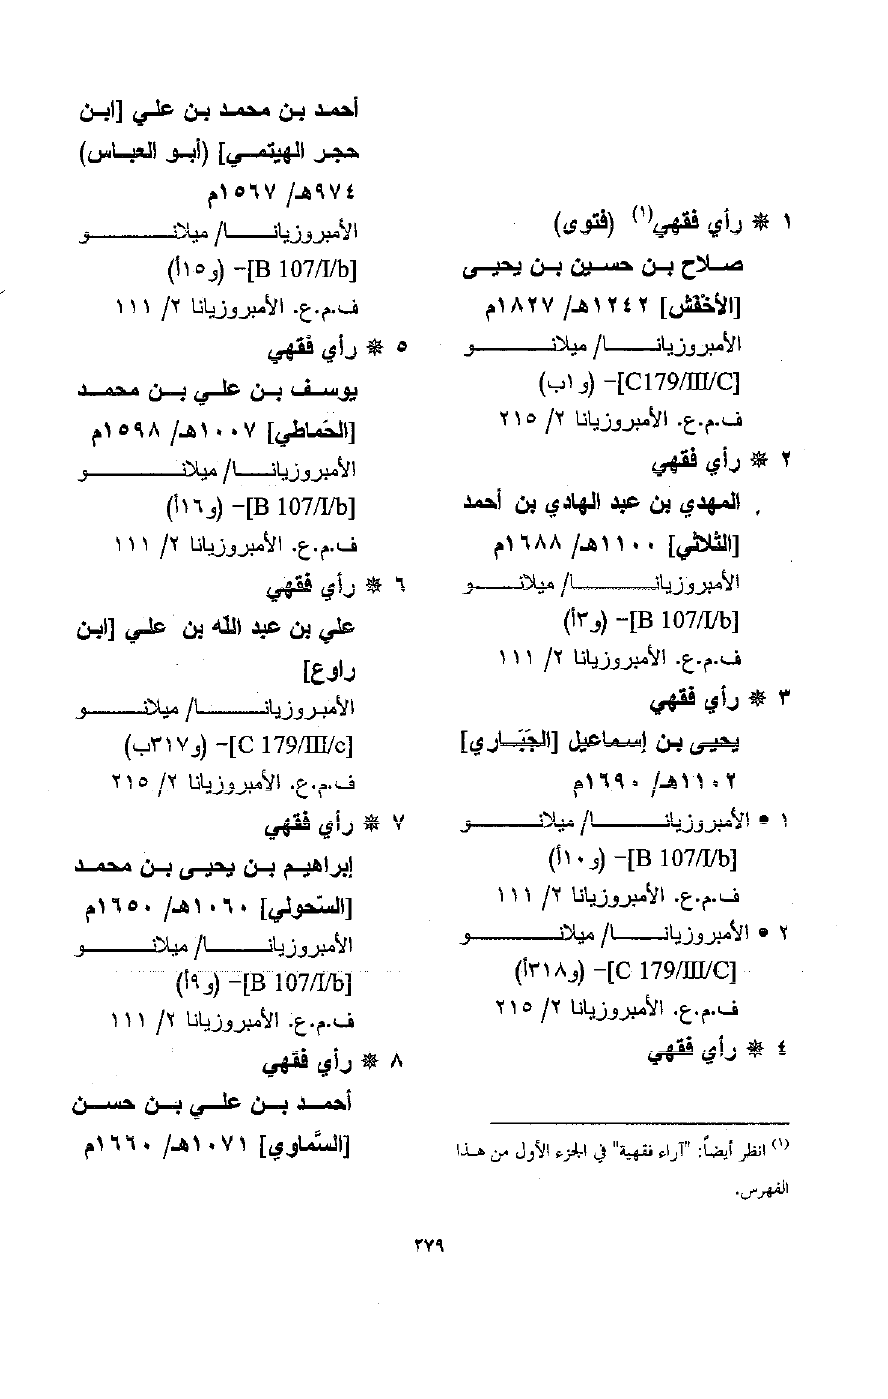 ١ * رأي فقهي(١) (فتوى)
صلاح بن حسين بن يحيى
[الأخْفَش] ١٢٤٢هـ/ ١٨٢٧م
الأمبروزيانا/ ميلانو
[C179/III/C]– (و١ب)
ف.م.ع. الأمبروزيانا ٢/ ٢١٥
٢ * رأي فقهي
المهدي بن عبد الهادي بن أحمد
[الثُّلائي] ١١٠٠هـ/ ١٦٨٨م
الأمبروزيانا/ ميلانو
[B 107/I/b]– (و٣أ)
ف.م.ع. الأمبروزيانا ٢/ ١١١
٣ * رأي فقهي
يحيى بن إسماعيل [الجَبّاري]
١١٠٢هـ/ ١٦٩٠م
١ • الأمبروزيانا/ ميلانو
[B 107/I/b]– (و١٠أ)
ف.م.ع. الأمبروزيانا ٢/ ١١١
٢ • الأمبروزيانا/ ميلانو
[C 179/III/C]– (و٣١٨أ)
ف.م.ع. الأمبروزيانا ٢/ ٢١٥
٤ * رأي فقهي
(١) انظر أيضاً: "آراء فقهية" في الجزء الأول من هذا
الفهرس.
أحمد بن محمد بن علي [ابن
حجر الهيتمي] (أبو العباس)
٩٧٤هـ/ ١٥٦٧م
الأمبروزيانا/ ميلانو
[B 107/I/b]– (و١٥أ)
ف.م.ع. الأمبروزيانا ٢/ ١١١
٥ * رأي فقهي
يوسف بن علي بن محمد
[الحَماطي] ١٠٠٧هـ/ ١٥٩٨م
الأمبروزيانا/ ميلانو
[B 107/I/b]– (و١٦أ)
ف.م.ع. الأمبروزيانا ٢/ ١١١
٦ * رأي فقهي
علي بن عبد الله بن علي [ابن
راوع]
الأمبروزيانا/ ميلانو
[C 179/III/c]– (و٣١٧ب)
ف.م.ع. الأمبروزيانا ٢/ ٢١٥
٧ * رأي فقهي
إبراهيم بن يحيى بن محمد
[السّحولي] ١٠٦٠هـ/ ١٦٥٠م
الأمبروزيانا/ ميلانو
[B 107/I/b]– (و٩أ)
ف.م.ع. الأمبروزيانا ٢/ ١١١
٨ * رأي فقهي
أحمد بن علي بن حسن
[السَّماوي] ١٠٧١هـ/ ١٦٦٠م
٢٧٩